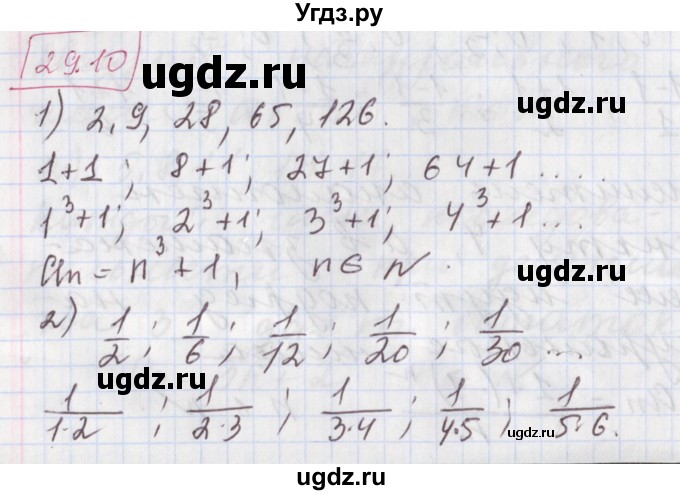 Угдз.ру
29.10
ugdz.ru
1) 2, 9, 28, 65, 126.
1+1; 8+1; 27+1; 64+1 ....
1³+1; 2³+1; 3³+1; 4³+1 ...
ugdz.ru
an = n³ + 1, n ∈ N.
2) 1/2; 1/6; 1/12; 1/20; 1/30 ...
ugdz.ru
1/1·2; 1/2·3; 1/3·4; 1/4·5; 1/5·6.
ugdz.ru
ugdz.ru